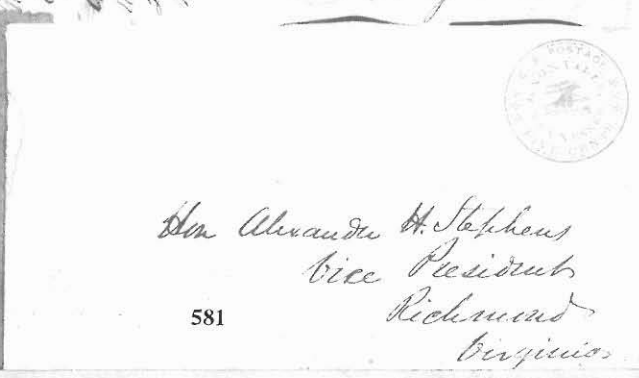 Hon Alexander H. Stephens
Vice President
Richmond
Virginia
581